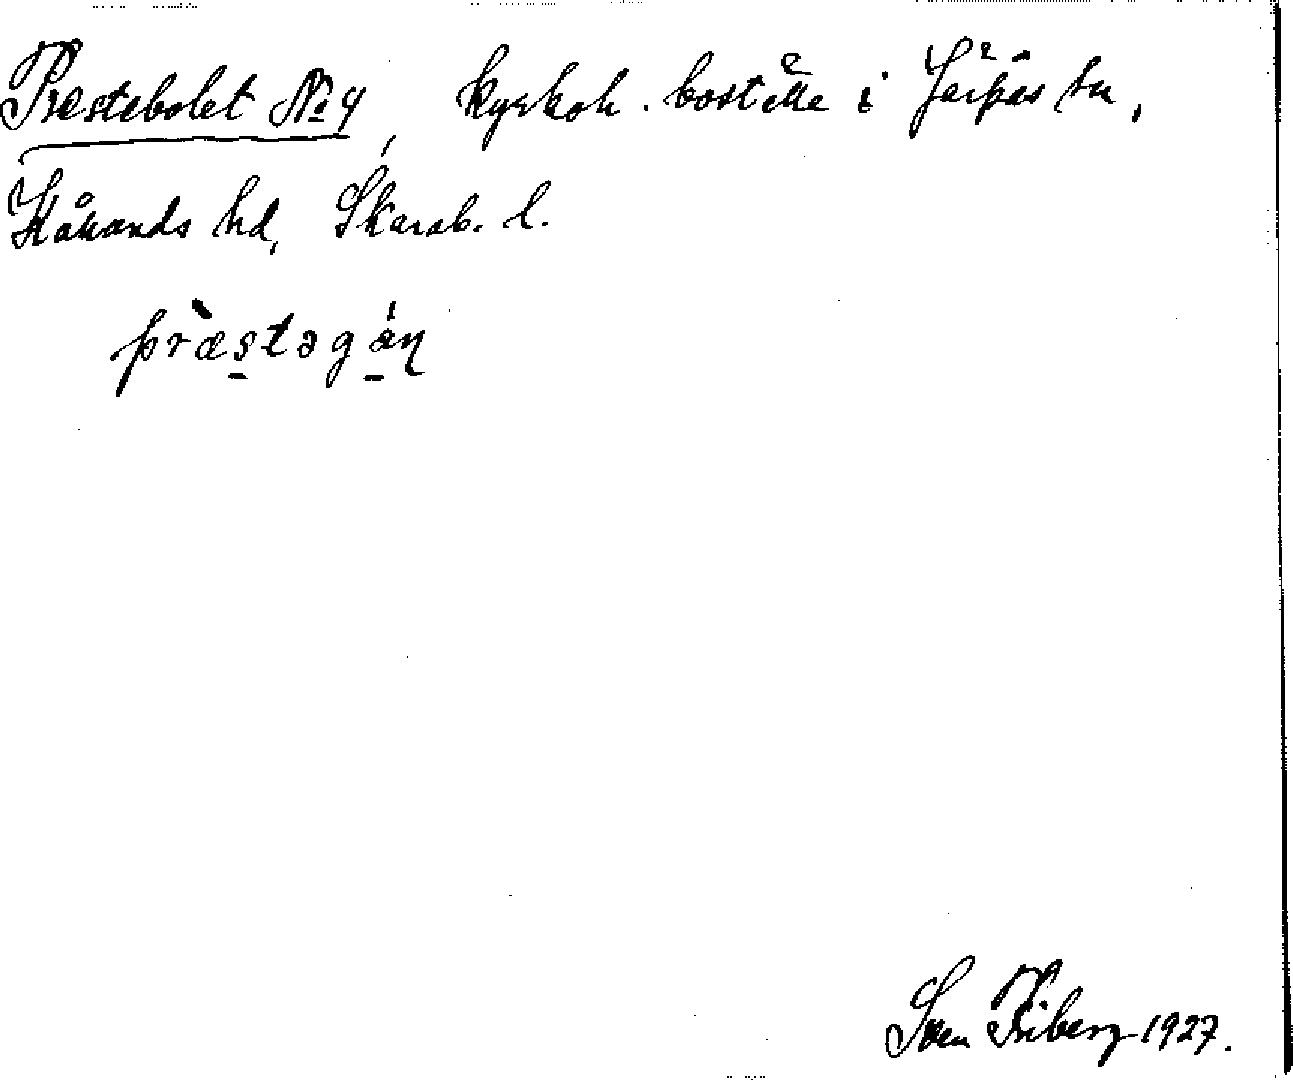 Præstebolet No 4, kyrkoh. boställe i Järpås sn,
Kållands hd, Skarab. l.
præstəgáɳ
Sven Friberg 1927.